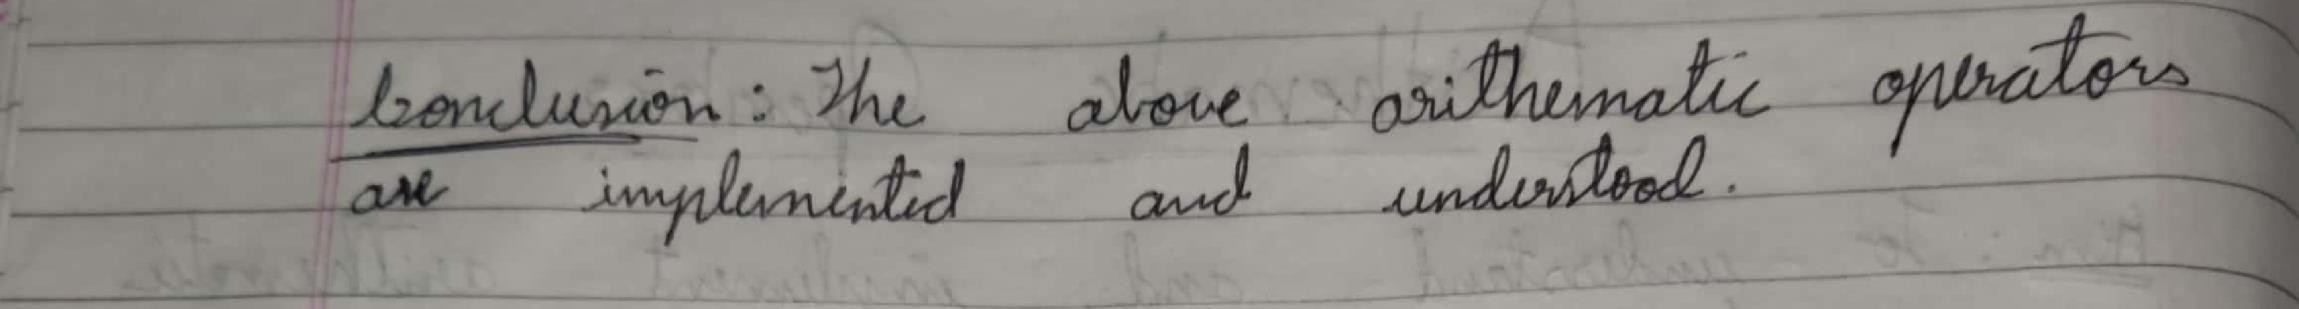 Conclusion: The above arithematic operators
are implemented and understood.